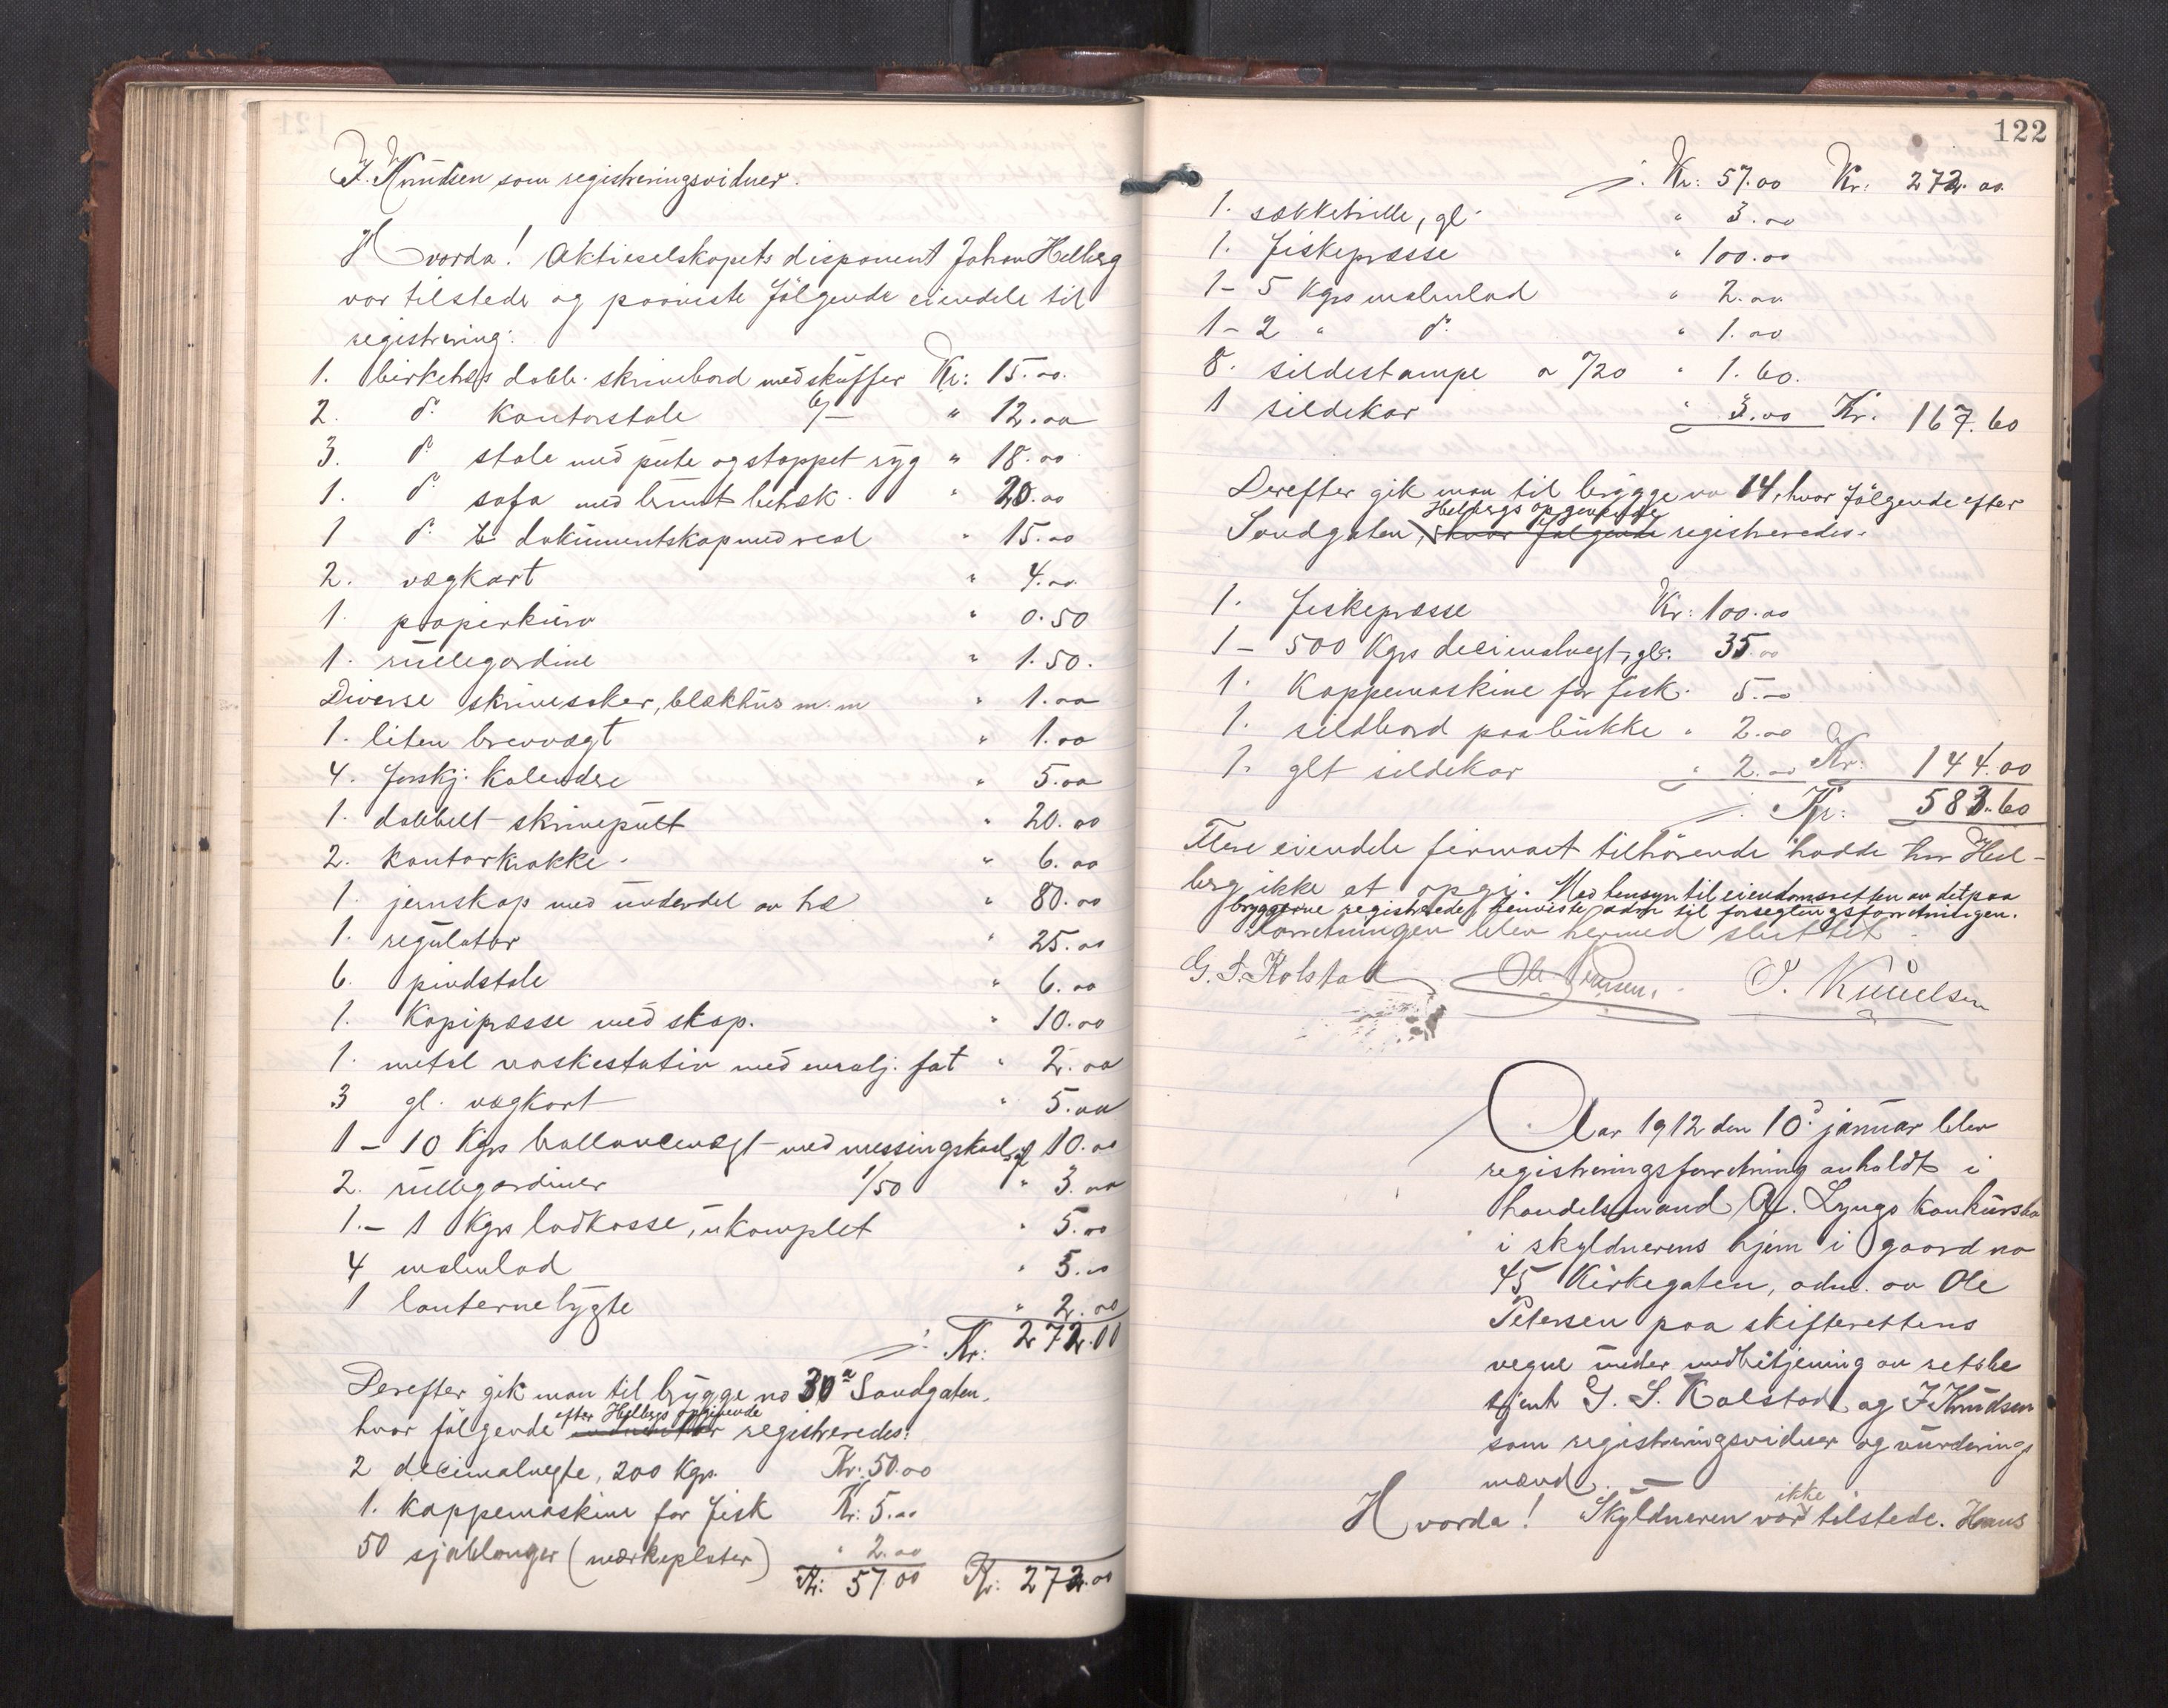 J. Knudsen som registreringsvidner.
Hvorda! Aktieselskapets disponent Johan Helberg
var tilstede og paaviste følgende eiendele til
registrering:
1. birketræs dobb. skrivebord med skuffer Kr: 15.00
2. do kontorstole 6/- " 12.00
3. do stole med pute og stoppet ryg " 18.00
1. do sofa med brunt betræk " 20.00
1 do dokumentskap med reol " 15.00
2. vægkart " 4.00
1. papirkurv " 0.50
1. rullegardine " 1.50.
Diverse skrivesaker, blækhus m. m " 1.00
1. liten brevvægt " 1.00
4. forskj. kalendre " 5.00
1. dobbelt skrivepult " 20.00
2. kontorkrakke. " 6.00
1. jernskap med underdel av træ " 80.00
1. regulator " 25.00
6. pindstole " 6.00
1. Kopipresse med skap. " 10.00
1. metal vaskestativ med emalj. fat " 2.00
3 gl. vægkart " 5.00
1 - 10 Kgrs ballancevægt med messingskaal " 10.00
2. rullegardiner 1/50 " 3.00
1. - 1 Kgrs lodkasse, ukomplet " 5.00
4 malmlod " 5.00
1 lanternelygte " 2.00
Kr: 272.00
Derefter gik man til brygge no 30a Sandgaten,
efter Helbergs opgivende
hvor følgende registreredes:
2 decimalvegte, 200 Kgr. Kr: 50.00
1. kappemaskine for fisk Kr: 5.00
50 sjablonger (mærkeplater) " 2.00
Kr: 57.00 Kr: 272.00
122
Kr: 57.00 Kr: 272.00
1. sækketrille, gl. " 3.00
1. fiskepresse " 100.00
1 - 5 Kgrs malmlod " 2.00
1 - 2 " do " 1.00
8. sildestampe a /20 " 1.60.
1 sildekar " 3.00 Kr. 167.60
Derefter gik man til brygge no 14, hvor følgende efter
Helbergs opgivende
Sandgaten, hvor følgende registreredes.
1. fiskepresse Kr: 100.00
1 - 500 Kgrs decimalvegt, gl. 35.00
1. Kappemaskine for fisk. 5.00
1. sildbord paa bukke " 2.00
1. glt sildekar " 2.00 Kr: 144.00
Kr: 583.60
Flere eiendele firmaet tilhørende hadde hr Hel-
berg ikke at opgi. Med hensyn til eiendomsretten av det paa
bryggerne registrerede, henviste adm til forseglingsforretningen.
Forretningen blev hermed sluttet.
G. S. Kolstad Ole Petersen. J. Knudsen
Aar 1912 den 10. januar blev
registreringsforretning avholdt i
handelsmand A. Lyngs konkursbo
i skyldnerens hjem i gaard no
45 Kirkegaten, adm. av Ole
Petersen paa skifterettens
vegne under medbetjening av retsbe
tjent G. S. Kolstad og J Knudsen
som registreringsvidner og vurderings
mænd.
ikke
Hvorda! Skyldneren var tilstede. Hans